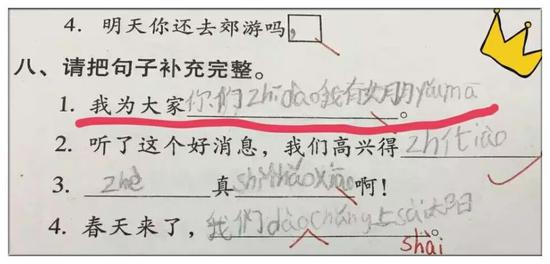 4. 明天你还去郊游吗
八、请把句子补充完整。
1. 我为大家你们zhīdao我有。
2. 听了这个好消息，我们高兴得zhí tiào
3. zhè真shì hǎo xiào啊！
4. 春天来了，我们dào chǎng上sài太日。
shài